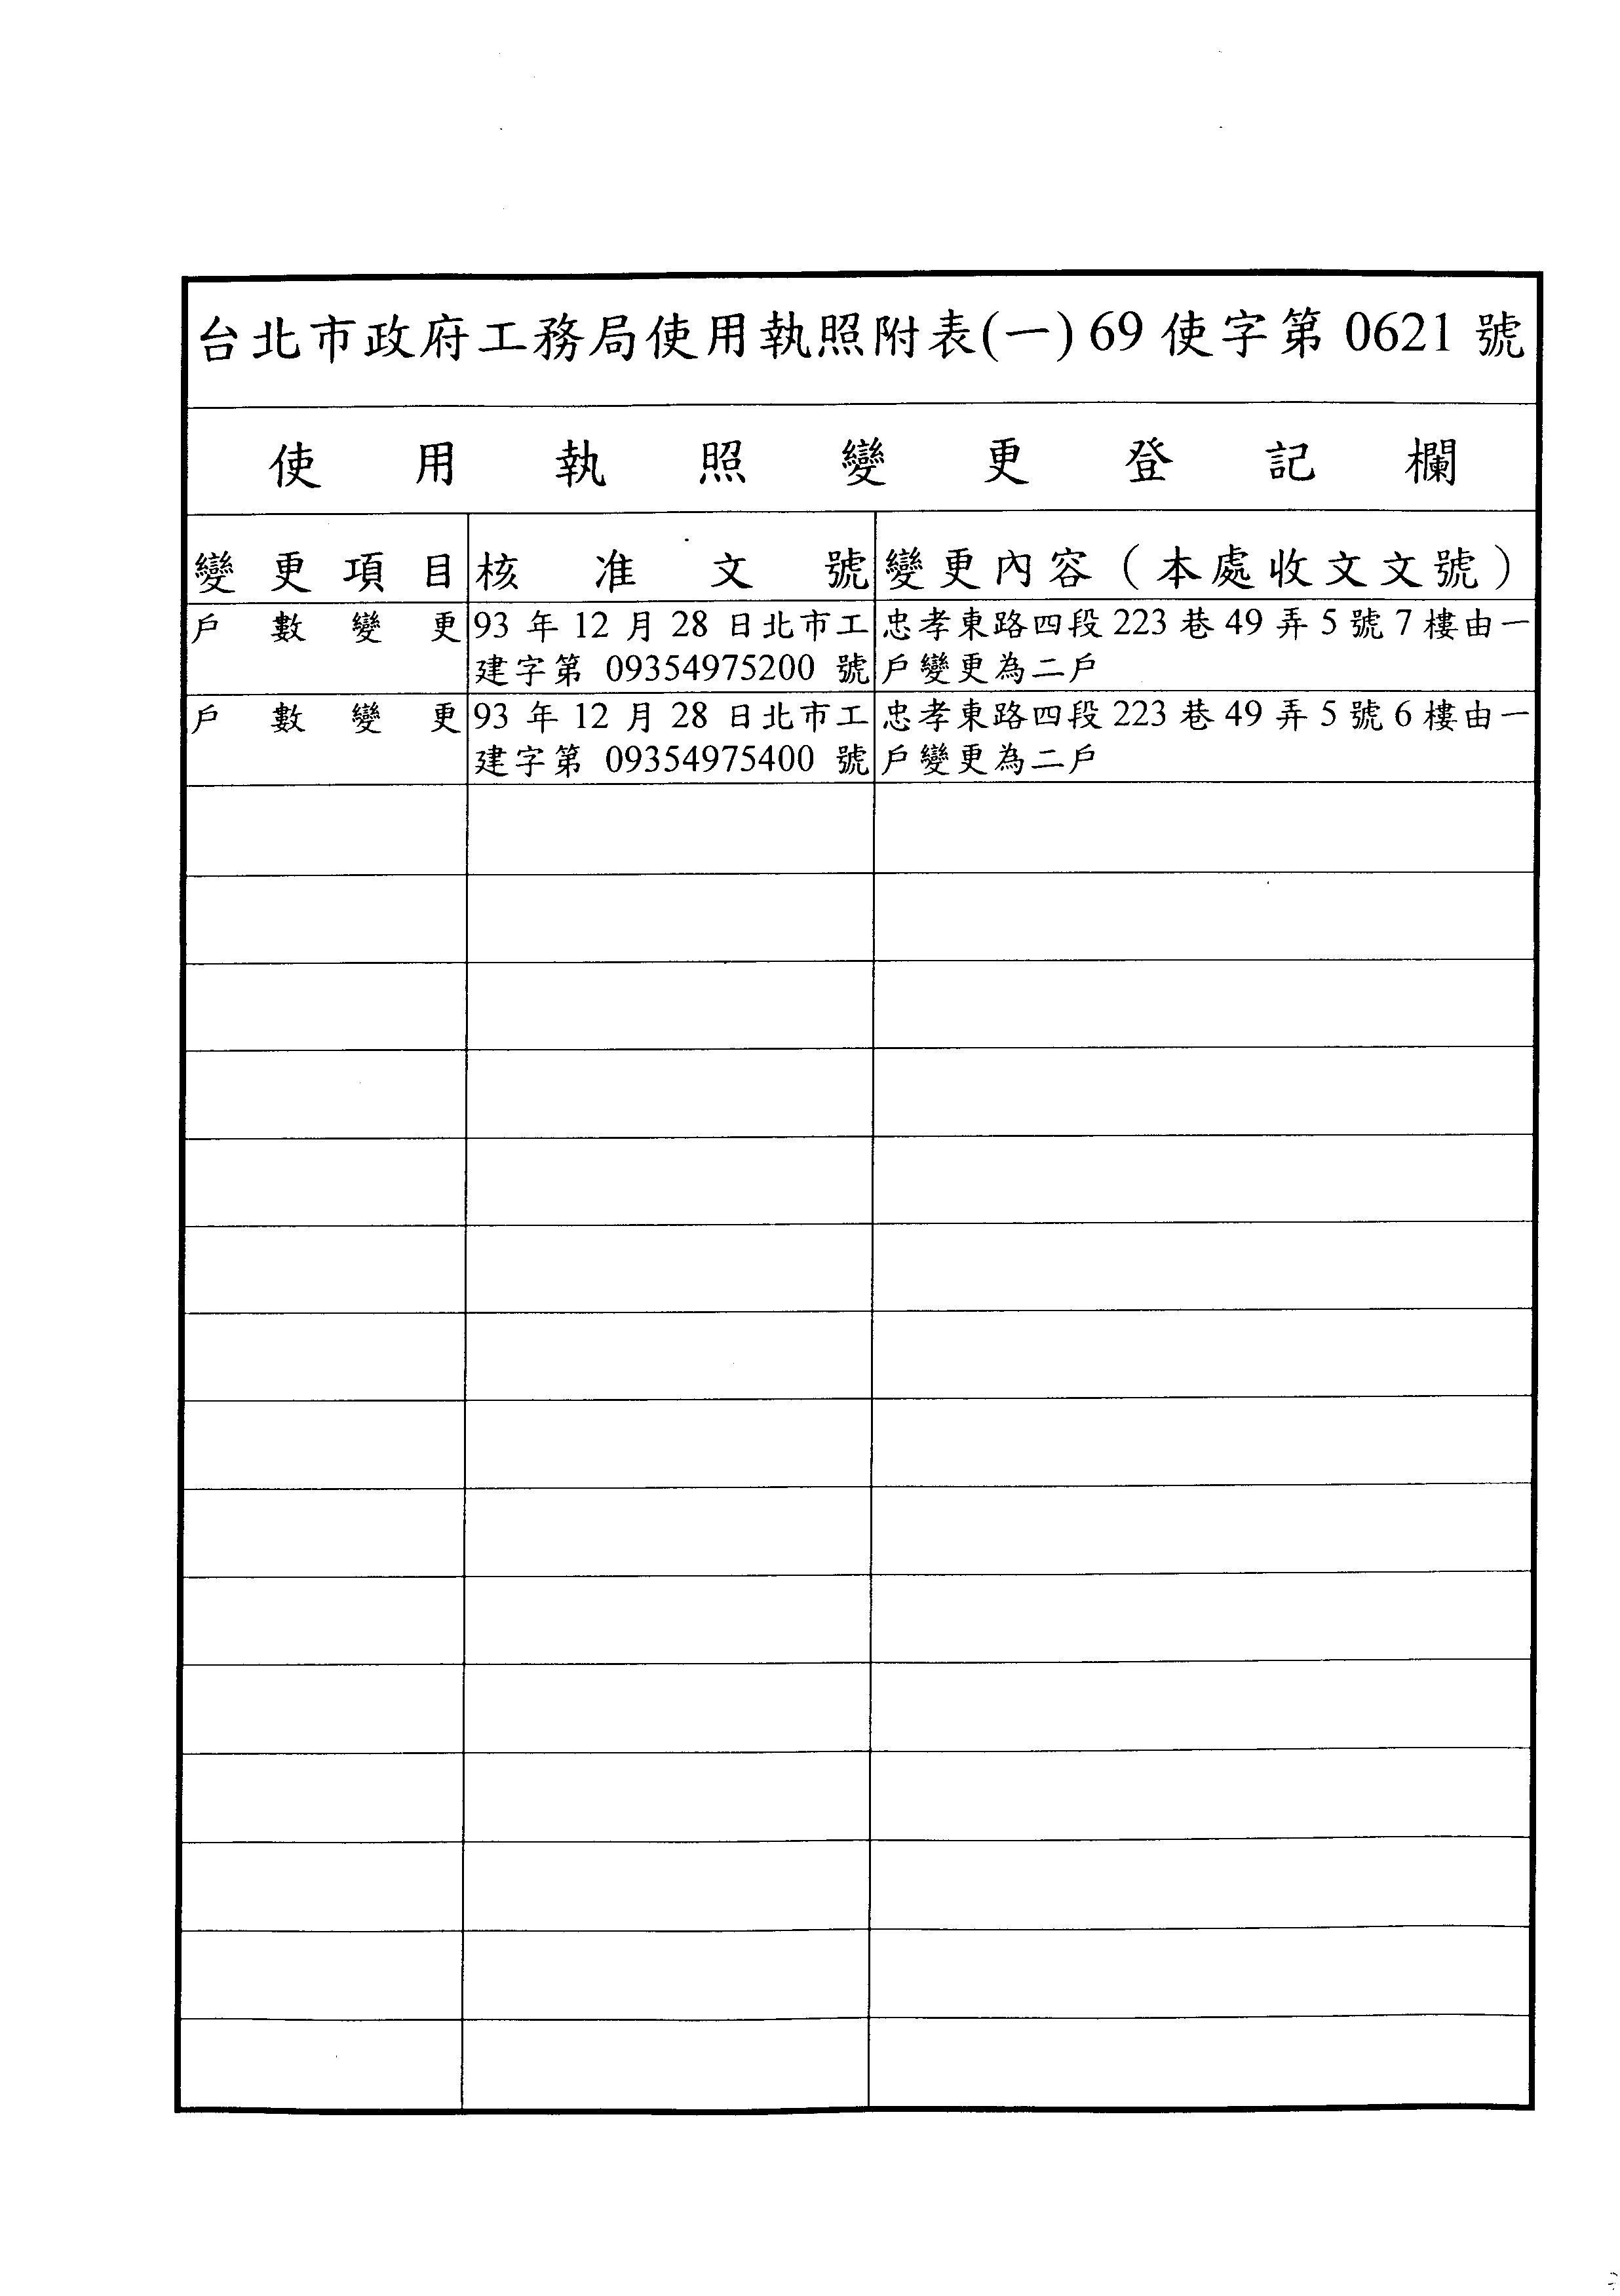 台北市政府工務局使用執照附表(一) 69 使字第 0621 號
使用執照變更登記欄
變更項目 核准文號 變更內容（本處收文文號）
戶數變更 93 年 12 月 28 日北市工 忠孝東路四段 223 巷 49 弄 5 號 7 樓由一
建字第 09354975200 號 戶變更為二戶
戶數變更 93 年 12 月 28 日北市工 忠孝東路四段 223 巷 49 弄 5 號 6 樓由一
建字第 09354975400 號 戶變更為二戶